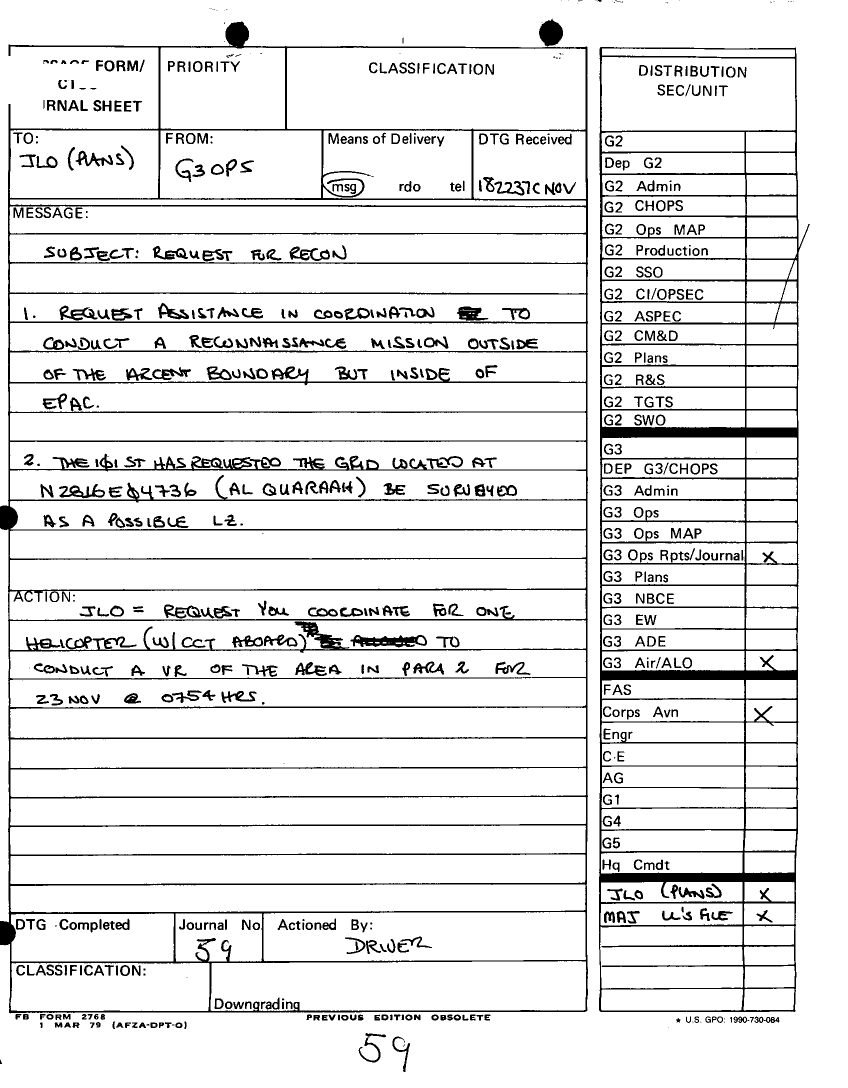 FORM/
RNAL SHEET
PRIORITY
CLASSIFICATION
TO:
JLO (PLANS)
FROM:
G3 OPS
Means of Delivery
msg rdo tel
DTG Received
182237C NOV
MESSAGE:
SUBJECT: REQUEST FOR RECON
1. REQUEST ASSISTANCE IN COORDINATION TO
CONDUCT A RECONNAISSANCE MISSION OUTSIDE
OF THE ARCENT BOUNDARY BUT INSIDE OF
EPAC.
2. THE 101ST HAS REQUESTED THE GRID LOCATED AT
N2816E04736 (AL QUARAAH) BE SURVEYED
AS A POSSIBLE LZ.
ACTION:
JLO = REQUEST YOU COORDINATE FOR ONE
HELICOPTER (W/ CCT ABOARD) TO
CONDUCT A VR OF THE AREA IN PARA 2 FOR
23 NOV @ 0754 HRS.
DTG Completed
Journal No.
59
Actioned By:
DRIVER
CLASSIFICATION:
Downgrading
FB FORM 2768
1 MAR 79 (AFZA-DPT-O)
PREVIOUS EDITION OBSOLETE
59
DISTRIBUTION
SEC/UNIT
G2
Dep G2
G2 Admin
G2 CHOPS
G2 Ops MAP
G2 Production
G2 SSO
G2 CI/OPSEC
G2 ASPEC
G2 CM&D
G2 Plans
G2 R&S
G2 TGTS
G2 SWO
G3
DEP G3/CHOPS
G3 Admin
G3 Ops
G3 Ops MAP
G3 Ops Rpts/Journal X
G3 Plans
G3 NBCE
G3 EW
G3 ADE
G3 Air/ALO X
FAS
Corps Avn X
Engr
C-E
AG
G1
G4
G5
Hq Cmdt
JLO (PLANS) X
MAJ LL'S FILE X
★ U.S. GPO: 1990-730-084